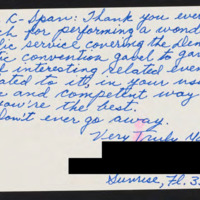 C-Span: Thank you ever
for performing a wond
service covering the Dem
convention gavel to gav
interesting related even
to it, in your usu
and competent way
you're the best.
Don't ever go away.
Very Truly Yo
Sunrise, Fl. 33